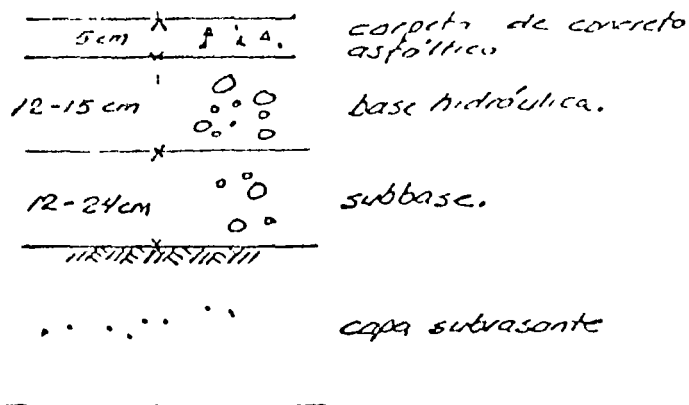 5cm
carpeta de concreto
asfáltico
12-15 cm
base hidráulica.
12-24cm
subbase.
capa subrasante